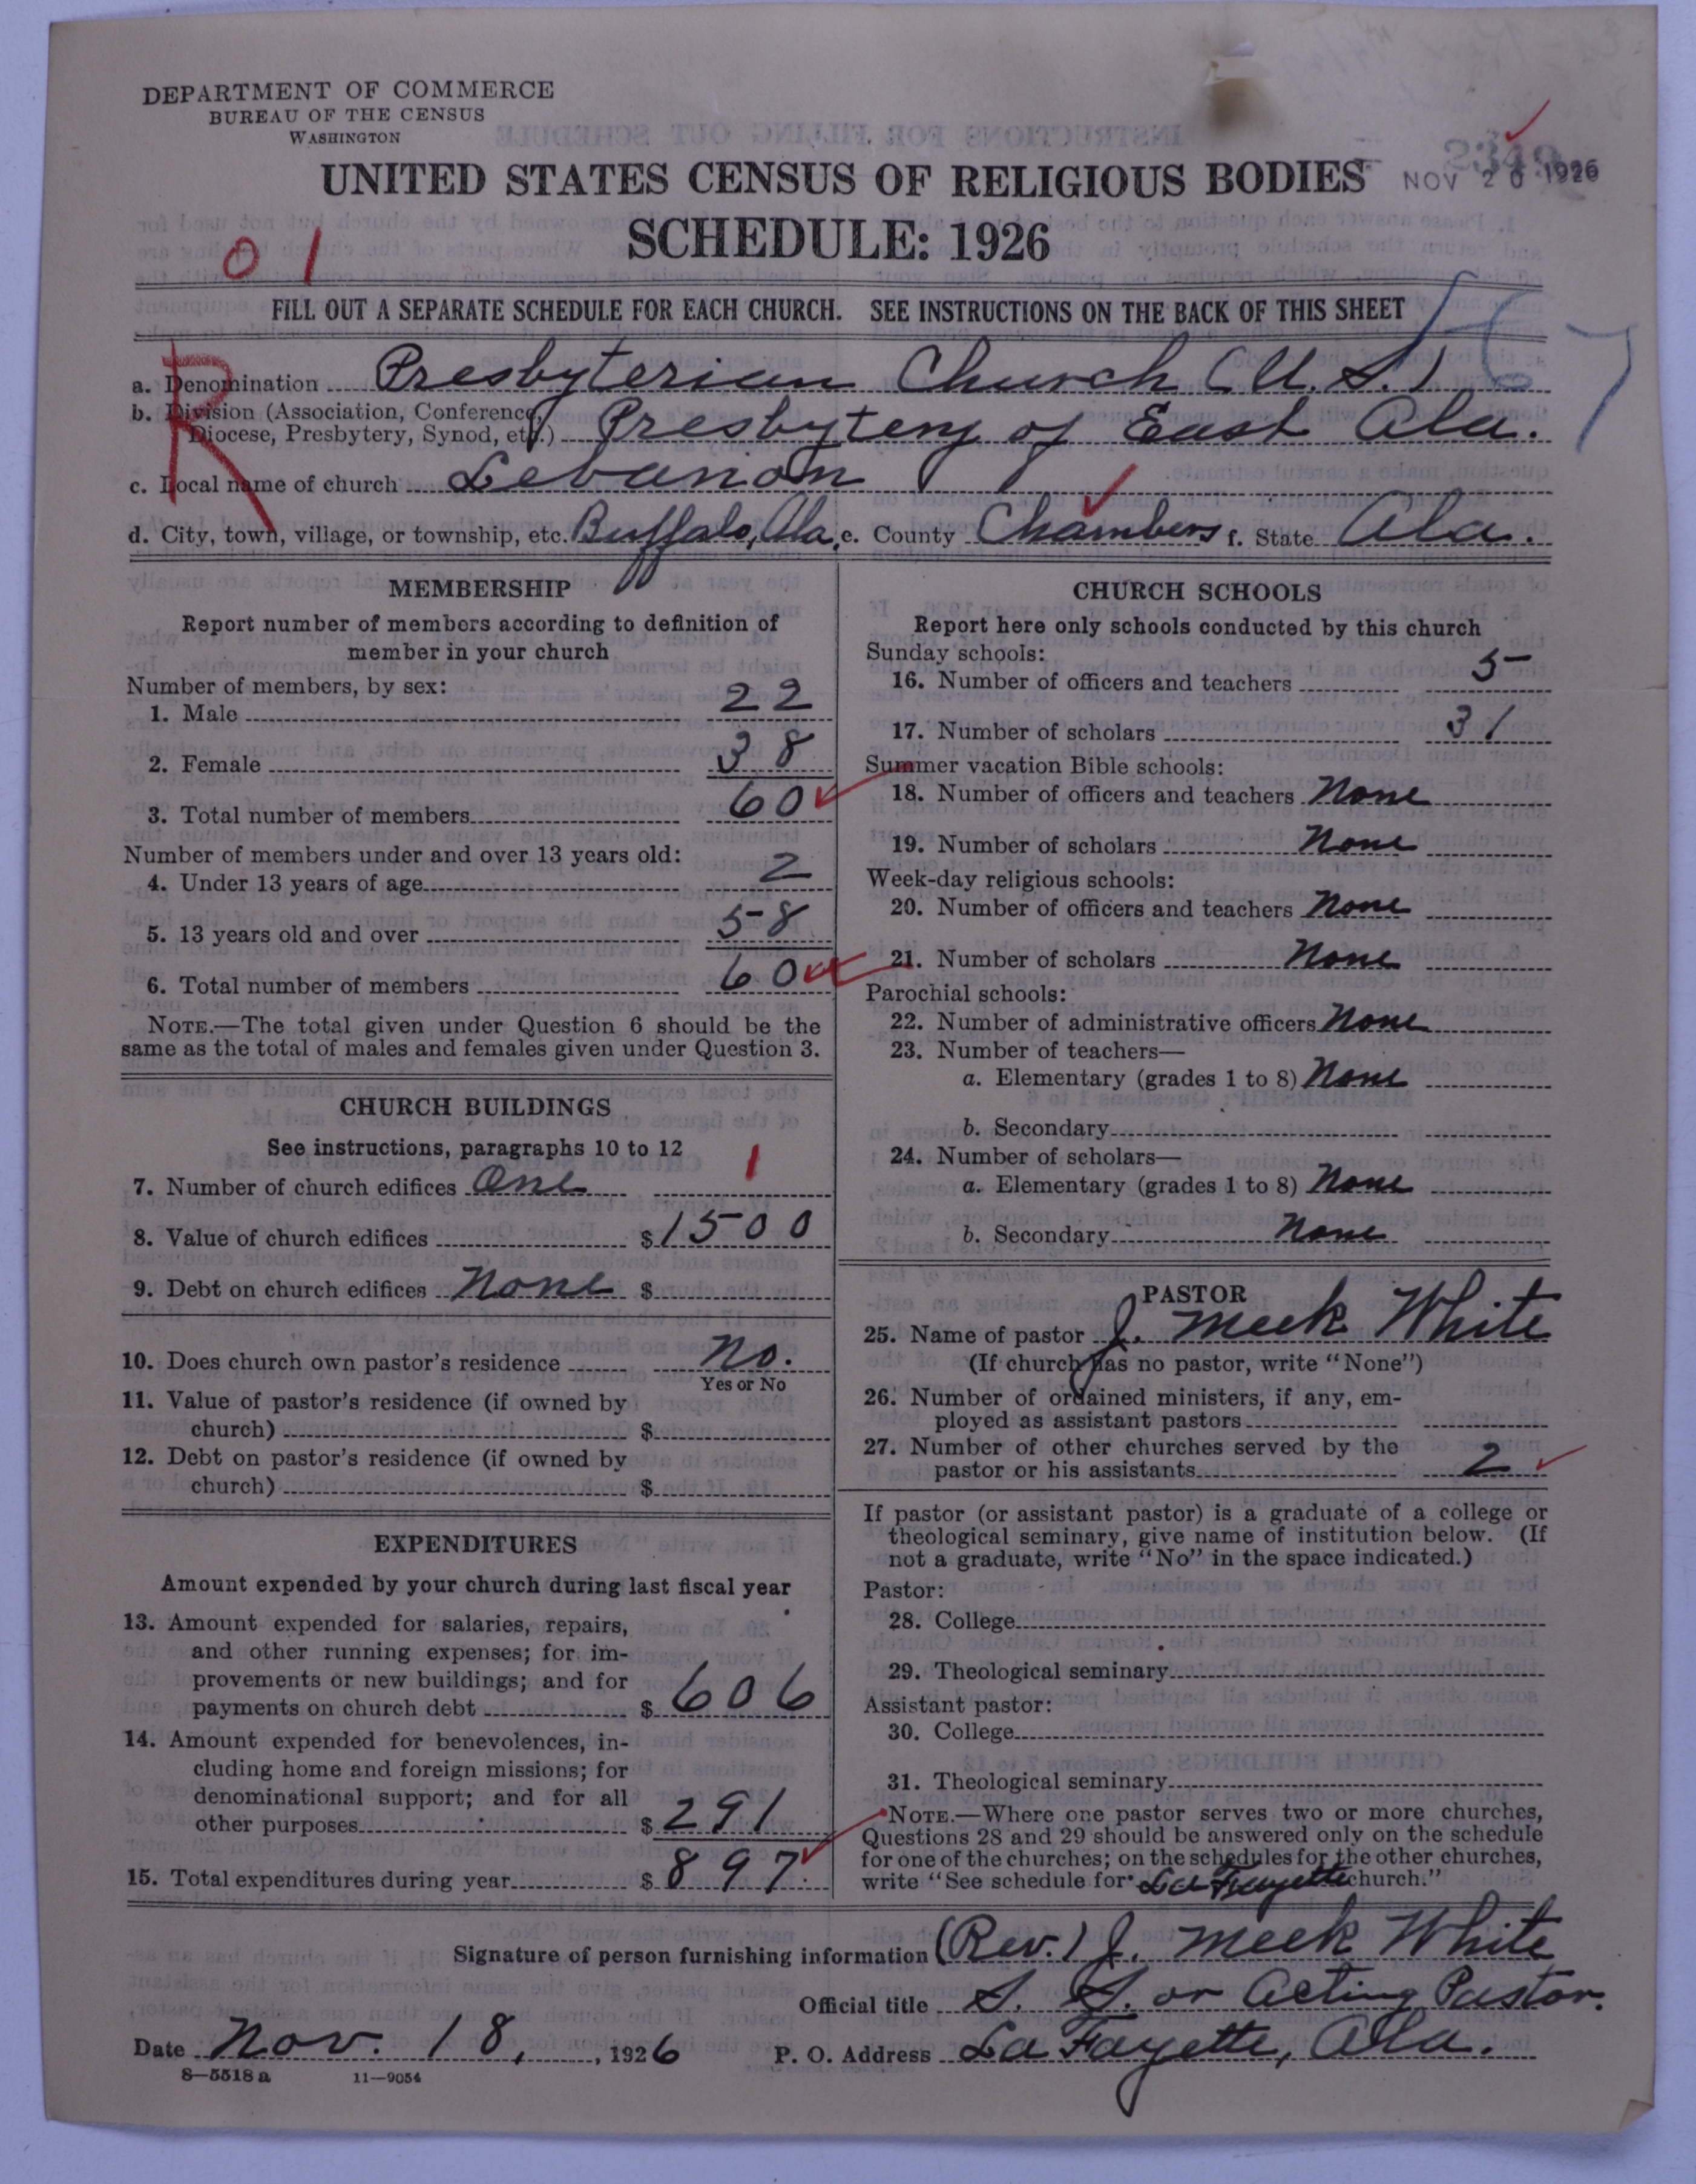 DEPARTMENT OF COMMERCE
BUREAU OF THE CENSUS
WASHINGTON
UNITED STATES CENSUS OF RELIGIOUS BODIES
NOV 20 1926
SCHEDULE: 1926
01
FILL OUT A SEPARATE SCHEDULE FOR EACH CHURCH. SEE INSTRUCTIONS ON THE BACK OF THIS SHEET
R
a. Denomination Presbyterian Church (U.S.)
b. Division (Association, Conference,
Diocese, Presbytery, Synod, etc.) Presbytery of East Ala.
c. Local name of church Lebanon
d. City, town, village, or township, etc. Buffalo, Ala. e. County Chambers f. State Ala.
MEMBERSHIP
Report number of members according to definition of
member in your church
Number of members, by sex:
1. Male 22
2. Female 38
3. Total number of members 60
Number of members under and over 13 years old:
4. Under 13 years of age 2
5. 13 years old and over 58
6. Total number of members 60
NOTE.—The total given under Question 6 should be the
same as the total of males and females given under Question 3.
CHURCH BUILDINGS
See instructions, paragraphs 10 to 12
7. Number of church edifices One 1
8. Value of church edifices $1500
9. Debt on church edifices None $
10. Does church own pastor's residence No.
Yes or No
11. Value of pastor's residence (if owned by
church) $
12. Debt on pastor's residence (if owned by
church) $
EXPENDITURES
Amount expended by your church during last fiscal year
13. Amount expended for salaries, repairs,
and other running expenses; for im-
provements or new buildings; and for
payments on church debt $606
14. Amount expended for benevolences, in-
cluding home and foreign missions; for
denominational support; and for all
other purposes $291
15. Total expenditures during year $897
CHURCH SCHOOLS
Report here only schools conducted by this church
Sunday schools:
16. Number of officers and teachers 5
17. Number of scholars 31
Summer vacation Bible schools:
18. Number of officers and teachers None
19. Number of scholars None
Week-day religious schools:
20. Number of officers and teachers None
21. Number of scholars None
Parochial schools:
22. Number of administrative officers None
23. Number of teachers—
a. Elementary (grades 1 to 8) None
b. Secondary
24. Number of scholars—
a. Elementary (grades 1 to 8) None
b. Secondary None
PASTOR
25. Name of pastor J. Meek White
(If church has no pastor, write "None")
26. Number of ordained ministers, if any, em-
ployed as assistant pastors
27. Number of other churches served by the
pastor or his assistants 2
If pastor (or assistant pastor) is a graduate of a college or
theological seminary, give name of institution below. (If
not a graduate, write "No" in the space indicated.)
Pastor:
28. College
29. Theological seminary
Assistant pastor:
30. College
31. Theological seminary
NOTE.—Where one pastor serves two or more churches,
Questions 28 and 29 should be answered only on the schedule
for one of the churches; on the schedules for the other churches,
write "See schedule for La Fayette church."
Signature of person furnishing information (Rev.) J. Meek White
Official title S. S. or Acting Pastor.
Date Nov. 18, 1926 P. O. Address La Fayette, Ala.
8—5518a 11—9054